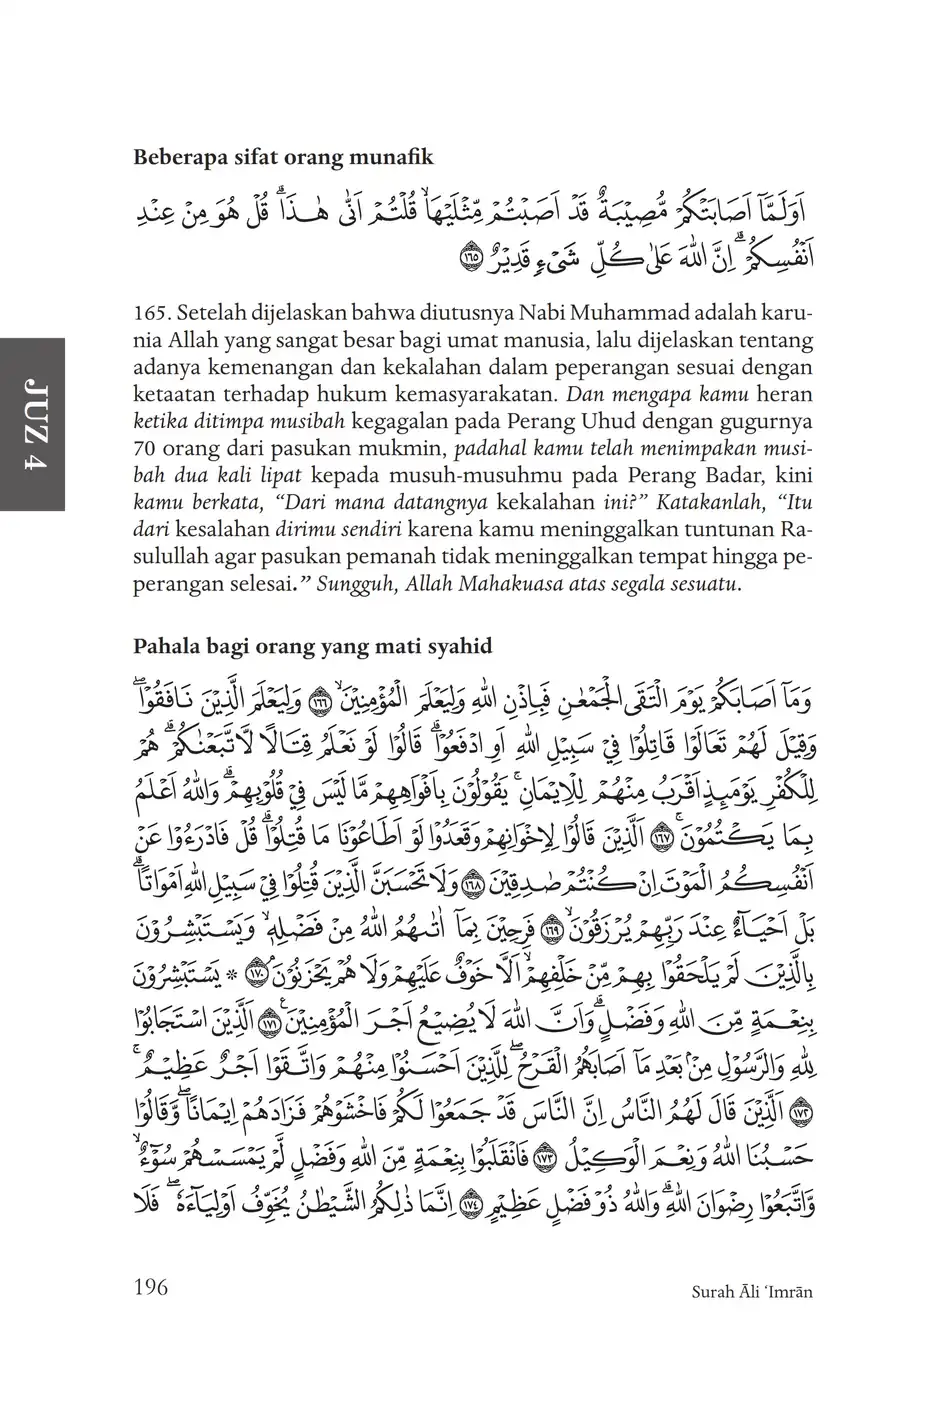 Beberapa sifat orang munafik
اَوَلَمَّآ اَصَابَتْكُمْ مُّصِيْبَةٌ قَدْ اَصَبْتُمْ مِّثْلَيْهَاۙ قُلْتُمْ اَنّٰى هٰذَاۗ قُلْ هُوَ مِنْ عِنْدِ
اَنْفُسِكُمْۗ اِنَّ اللّٰهَ عَلٰى كُلِّ شَيْءٍ قَدِيْرٌ ١٦٥
165. Setelah dijelaskan bahwa diutusnya Nabi Muhammad adalah karu-
nia Allah yang sangat besar bagi umat manusia, lalu dijelaskan tentang
adanya kemenangan dan kekalahan dalam peperangan sesuai dengan
ketaatan terhadap hukum kemasyarakatan. Dan mengapa kamu heran
ketika ditimpa musibah kegagalan pada Perang Uhud dengan gugurnya
70 orang dari pasukan mukmin, padahal kamu telah menimpakan musi-
bah dua kali lipat kepada musuh-musuhmu pada Perang Badar, kini
kamu berkata, “Dari mana datangnya kekalahan ini?” Katakanlah, “Itu
dari kesalahan dirimu sendiri karena kamu meninggalkan tuntunan Ra-
sulullah agar pasukan pemanah tidak meninggalkan tempat hingga pe-
perangan selesai.” Sungguh, Allah Mahakuasa atas segala sesuatu.
Pahala bagi orang yang mati syahid
وَمَآ اَصَابَكُمْ يَوْمَ الْتَقَى الْجَمْعٰنِ فَبِاِذْنِ اللّٰهِ وَلِيَعْلَمَ الْمُؤْمِنِيْنَۙ ١٦٦ وَلِيَعْلَمَ الَّذِيْنَ نَافَقُوْاۖ
وَقِيْلَ لَهُمْ تَعَالَوْا قَاتِلُوْا فِيْ سَبِيْلِ اللّٰهِ اَوِ ادْفَعُوْاۗ قَالُوْا لَوْ نَعْلَمُ قِتَالًا لَّاتَّبَعْنٰكُمْۗ هُمْ
لِلْكُفْرِ يَوْمَىِٕذٍ اَقْرَبُ مِنْهُمْ لِلْاِيْمَانِۚ يَقُوْلُوْنَ بِاَفْوَاهِهِمْ مَّا لَيْسَ فِيْ قُلُوْبِهِمْۗ وَاللّٰهُ اَعْلَمُ
بِمَا يَكْتُمُوْنَۚ ١٦٧ اَلَّذِيْنَ قَالُوْا لِاِخْوَانِهِمْ وَقَعَدُوْا لَوْ اَطَاعُوْنَا مَا قُتِلُوْاۗ قُلْ فَادْرَءُوْا عَنْ
اَنْفُسِكُمُ الْمَوْتَ اِنْ كُنْتُمْ صٰدِقِيْنَ ١٦٨ وَلَا تَحْسَبَنَّ الَّذِيْنَ قُتِلُوْا فِيْ سَبِيْلِ اللّٰهِ اَمْوَاتًاۗ
بَلْ اَحْيَاۤءٌ عِنْدَ رَبِّهِمْ يُرْزَقُوْنَۙ ١٦٩ فَرِحِيْنَ بِمَآ اٰتٰىهُمُ اللّٰهُ مِنْ فَضْلِهٖۙ وَيَسْتَبْشِرُوْنَ
بِالَّذِيْنَ لَمْ يَلْحَقُوْا بِهِمْ مِّنْ خَلْفِهِمْۙ اَلَّا خَوْفٌ عَلَيْهِمْ وَلَا هُمْ يَحْزَنُوْنَۘ ١٧٠ ۞ يَسْتَبْشِرُوْنَ
بِنِعْمَةٍ مِّنَ اللّٰهِ وَفَضْلٍۗ وَاَنَّ اللّٰهَ لَا يُضِيْعُ اَجْرَ الْمُؤْمِنِيْنَࣖ ١٧١ اَلَّذِيْنَ اسْتَجَابُوْا
لِلّٰهِ وَالرَّسُوْلِ مِنْۢ بَعْدِ مَآ اَصَابَهُمُ الْقَرْحُۖ لِلَّذِيْنَ اَحْسَنُوْا مِنْهُمْ وَاتَّقَوْا اَجْرٌ عَظِيْمٌۚ
١٧٢ اَلَّذِيْنَ قَالَ لَهُمُ النَّاسُ اِنَّ النَّاسَ قَدْ جَمَعُوْا لَكُمْ فَاخْشَوْهُمْ فَزَادَهُمْ اِيْمَانًاۖ وَّقَالُوْا
حَسْبُنَا اللّٰهُ وَنِعْمَ الْوَكِيْلُ ١٧٣ فَانْقَلَبُوْا بِنِعْمَةٍ مِّنَ اللّٰهِ وَفَضْلٍ لَّمْ يَمْسَسْهُمْ سُوْۤءٌۙ
وَّاتَّبَعُوْا رِضْوَانَ اللّٰهِۗ وَاللّٰهُ ذُوْ فَضْلٍ عَظِيْمٍ ١٧٤ اِنَّمَا ذٰلِكُمُ الشَّيْطٰنُ يُخَوِّفُ اَوْلِيَاۤءَهٗۖ فَلَا
JUZ 4
196
Surah Āli ‘Imrān